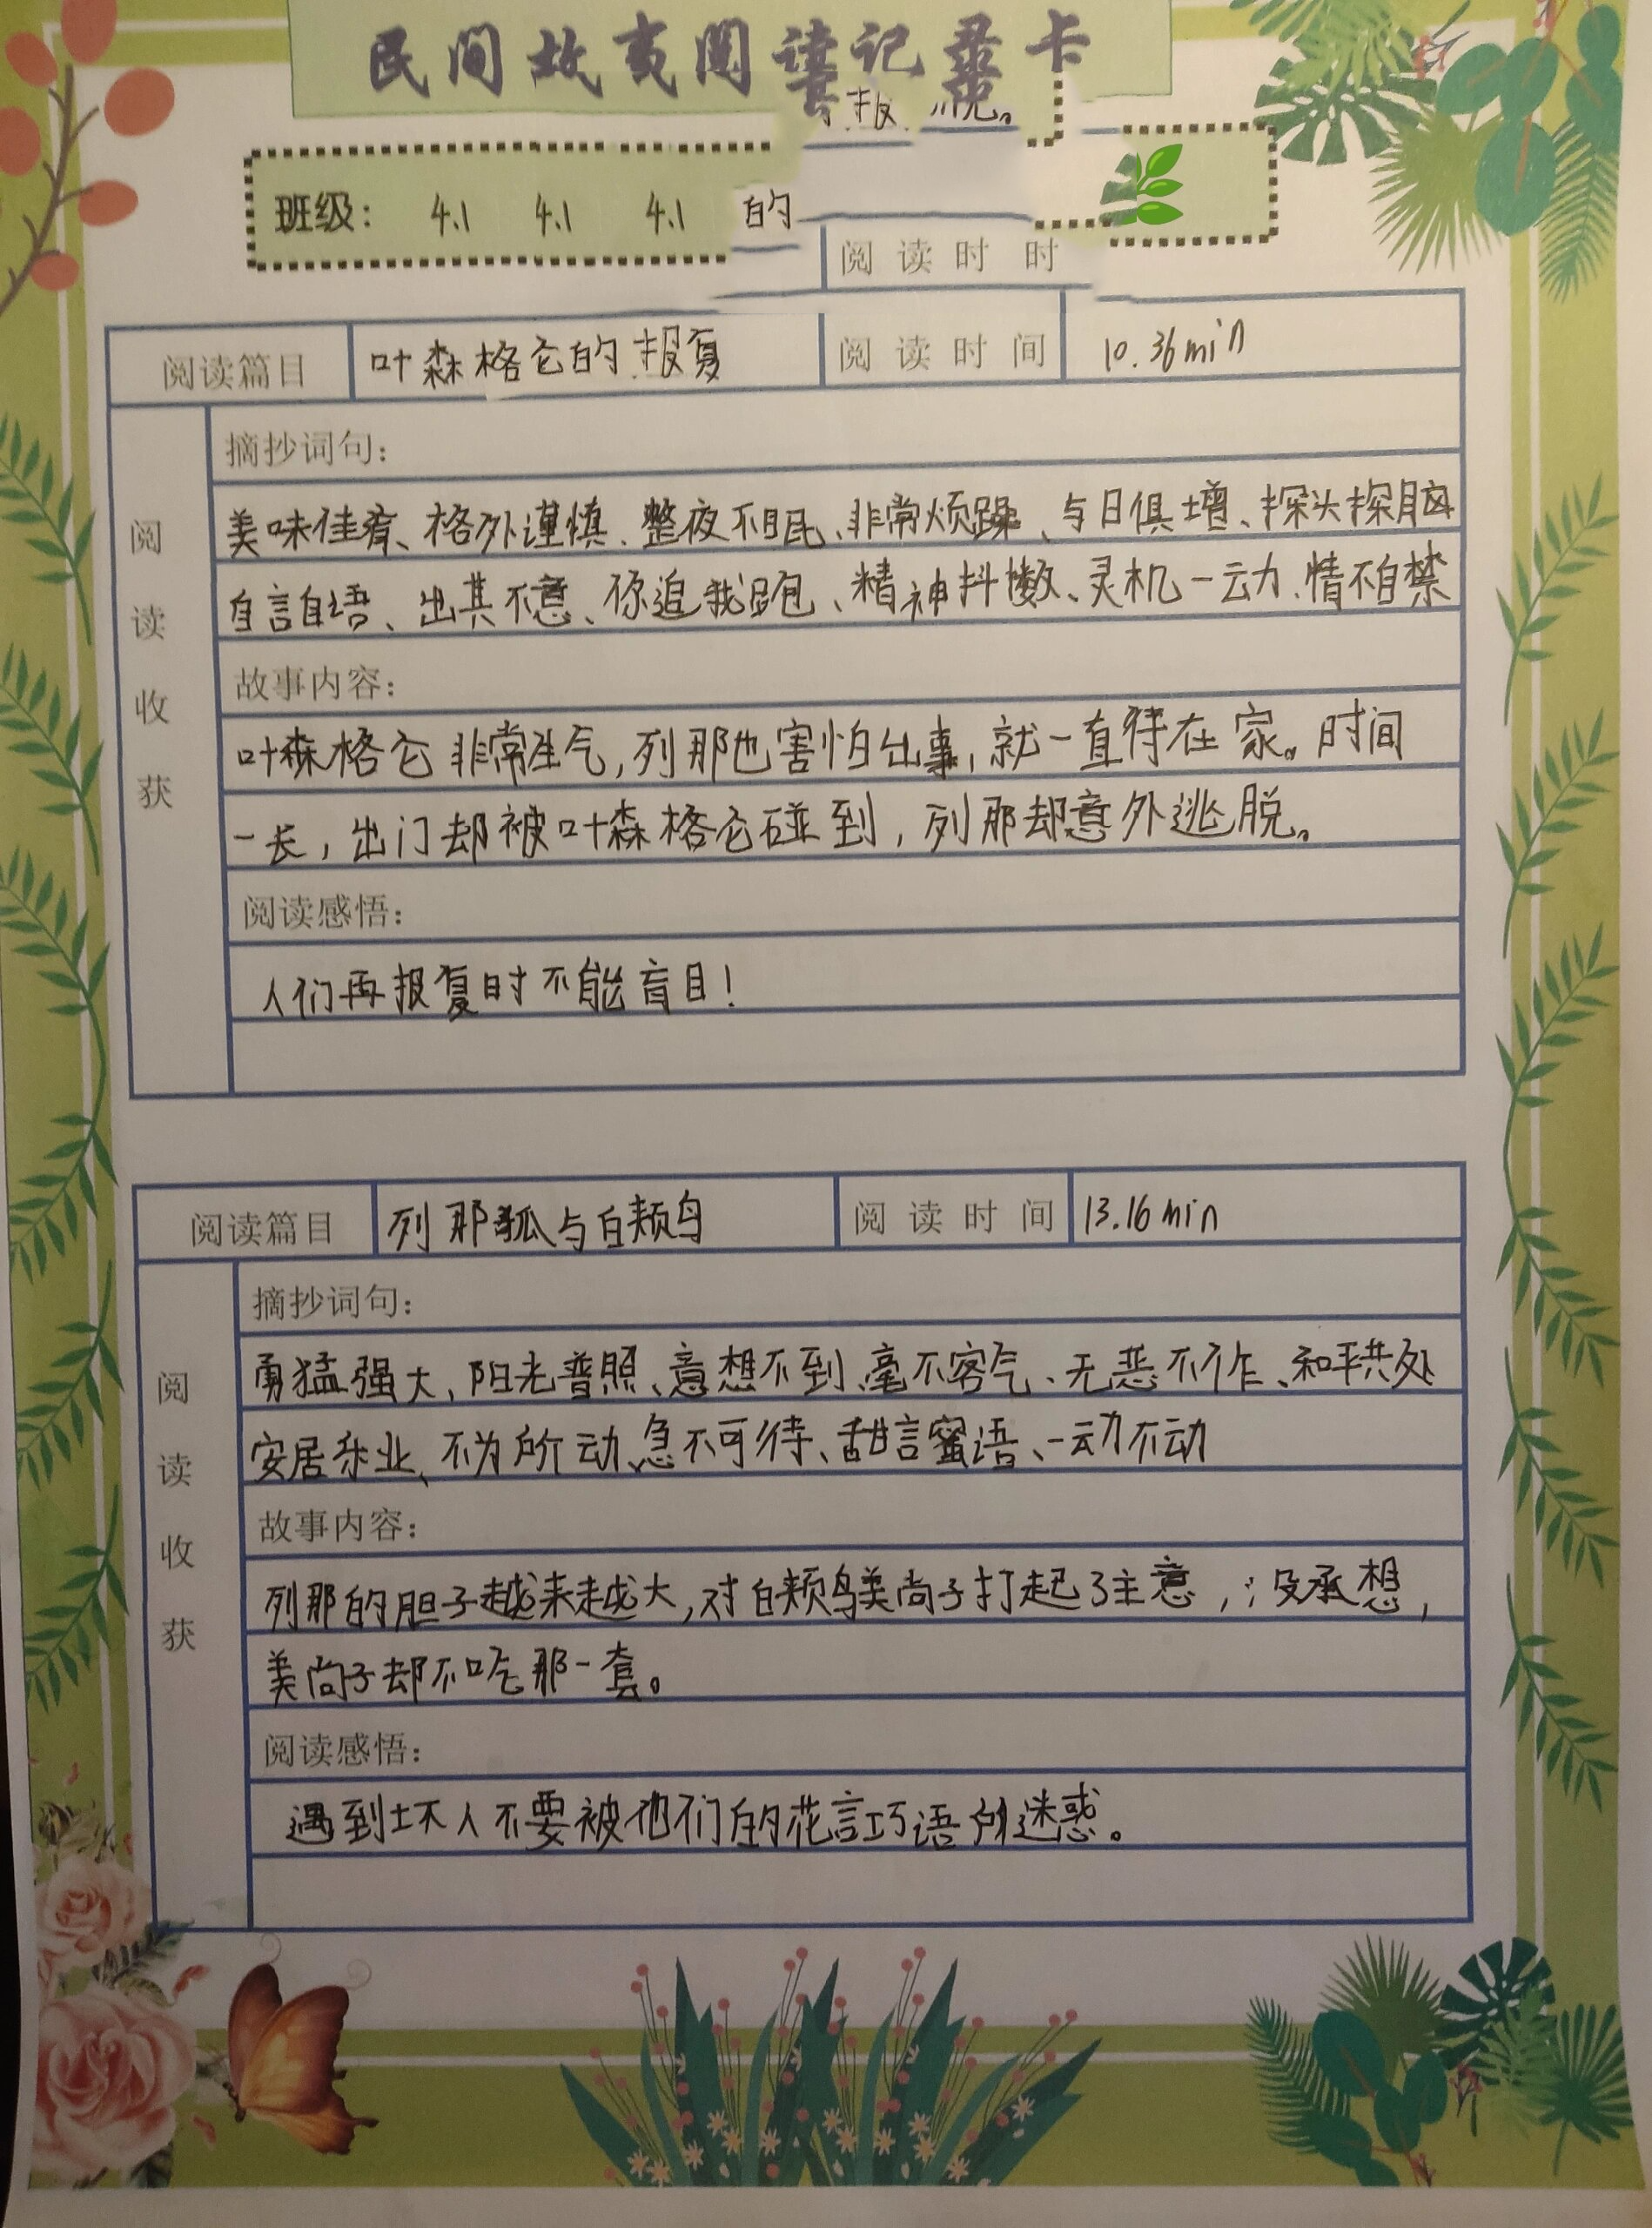 民间故事阅读记录卡
报
班级： 4.1 4.1 4.1 的
阅读时 时
阅读篇目 叶森格仑的报复 阅读时间 10.36min
阅读收获
摘抄词句：
美味佳肴、格外谨慎、整夜不眠、非常烦躁、与日俱增、探头探脑
自言自语、出其不意、你追我跑、精神抖擞、灵机一动、情不自禁
故事内容：
叶森格仑非常生气，列那也害怕出事，就一直待在家。时间
一长，出门却被叶森格仑碰到，列那却意外逃脱。
阅读感悟：
人们再报复时不能盲目！
阅读篇目 列那狐与白颊鸟 阅读时间 13.16min
阅读收获
摘抄词句：
勇猛强大、阳光普照、意想不到、毫不客气、无恶不作、和平共处
安居乐业、不为所动、急不可待、甜言蜜语、一动不动
故事内容：
列那的胆子越来越大，对白颊鸟美尚子打起了主意，没承想，
美尚子却不吃那一套。
阅读感悟：
遇到坏人不要被他们的花言巧语所迷惑。